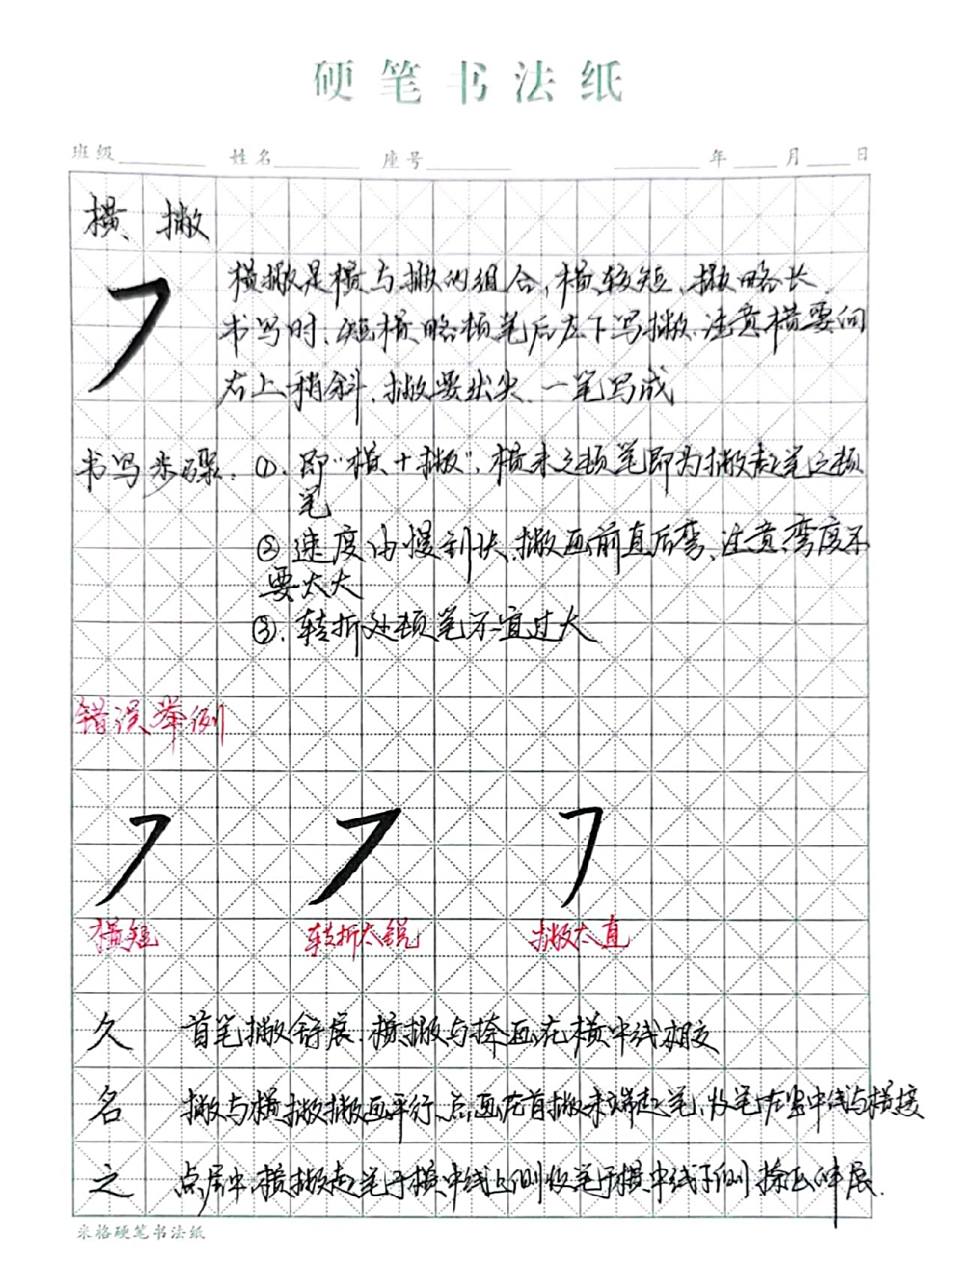 硬笔书法纸
班级 姓名 座号 年 月 日
横、撇
横撇是横与撇的组合，横较短、撇略长.
书写时、短横略顿笔后左下写撇.注意横要向
右上稍斜.撇要出尖、一笔写成
书写步骤: ①.即“横+撇”，横末之顿笔即为撇起笔之顿
笔
②速度由慢到快、撇画前直后弯、注意、弯度不
要太大
③.转折处顿笔不宜过大
错误举例
横短 转折太锐 撇太直
久 首笔撇舒展.横撇与捺画在横中线相交
名 撇与横撇撇画平行、点画在首撇末端起笔、收笔在竖中线与横接
之 点居中、横撇起笔于横中线上侧收笔于横中线下侧、捺画伸展.
米格硬笔书法纸